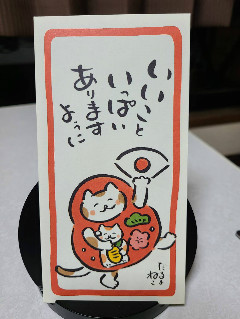 いいこと
いっぱい
あります
ように
だるま
ねこ